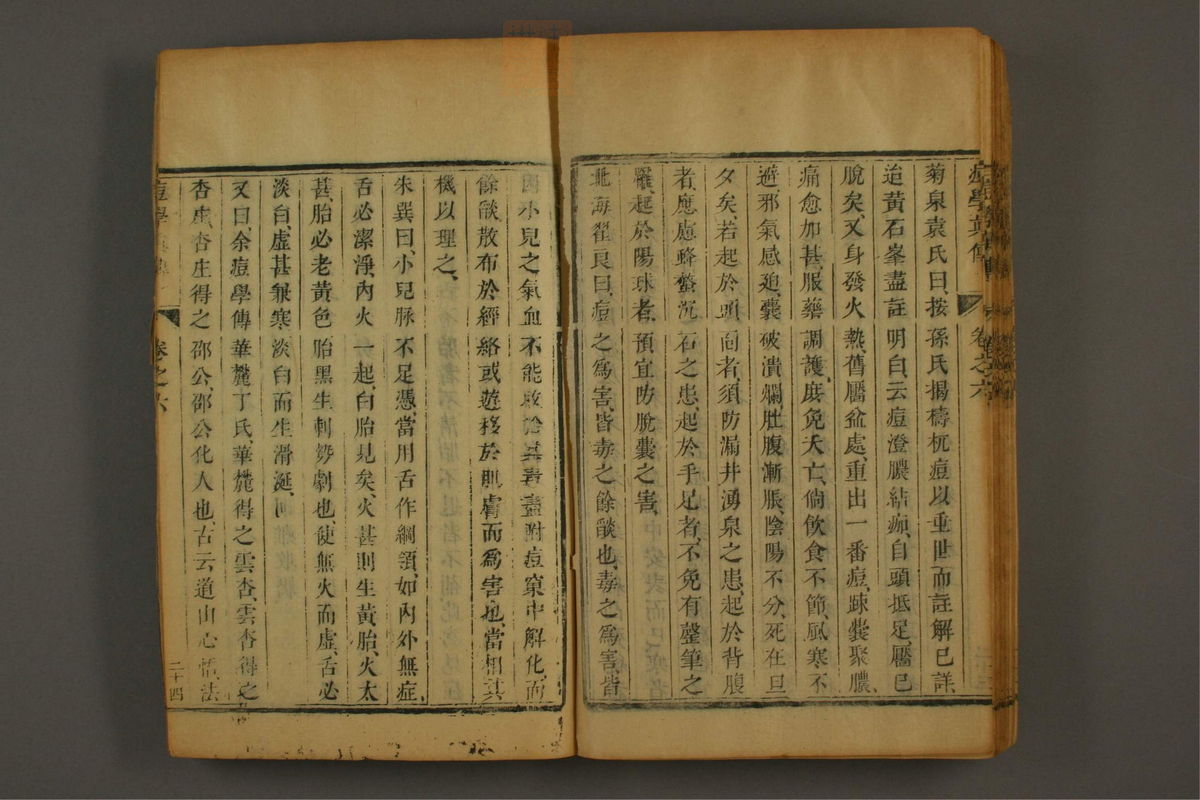 痘學真傳 卷之六
菊泉袁氏曰、按孫氏揚檮杌痘以重世而註解已詳、
迨黃石峯盡註明白、云痘澄膿結痂、自頭抵足、靨已
脫矣、又身發火熱、舊靨盆處、重出一番痘、踈囊聚膿、
痛愈加甚、服藥調護、庶免夭亡、倘飲食不節、風寒不
避、邪氣感廹、囊破潰爛、肚腹漸脹、陰陽不分、死在旦
夕矣、若起於頭面者、須防漏井湧泉之患、起於背腹
者、應慮蜂螫沉石之患、起於手足者、不免有罄筆之
罹、起於陽球者、預宜防脫囊之害、
北海翟良曰、痘之爲害、皆毒之餘燄也、毒之爲害、皆
因小兒之氣血不能收斂其毒盡附痘窠中解化、而
餘燄散布於經絡或遊移於肌膚而爲害也、當相其
機以理之、
朱巽曰、小兒脉不足憑、當用舌作綱領、如內外無症、
舌必潔淨、內火一起、白胎見矣、火甚則生黃胎、火太
甚、胎必老黃色胎黑生刺勢劇也、使無火而虛、舌必
淡白、虛甚兼寒、淡白而生滑涎、
又曰、余痘學傳華麓丁氏、華麓得之雲杏、雲杏得之
杏虛、杏庄得之邵公、邵公化人也、古云道由心悟、法
痘學 卷之六 二十四